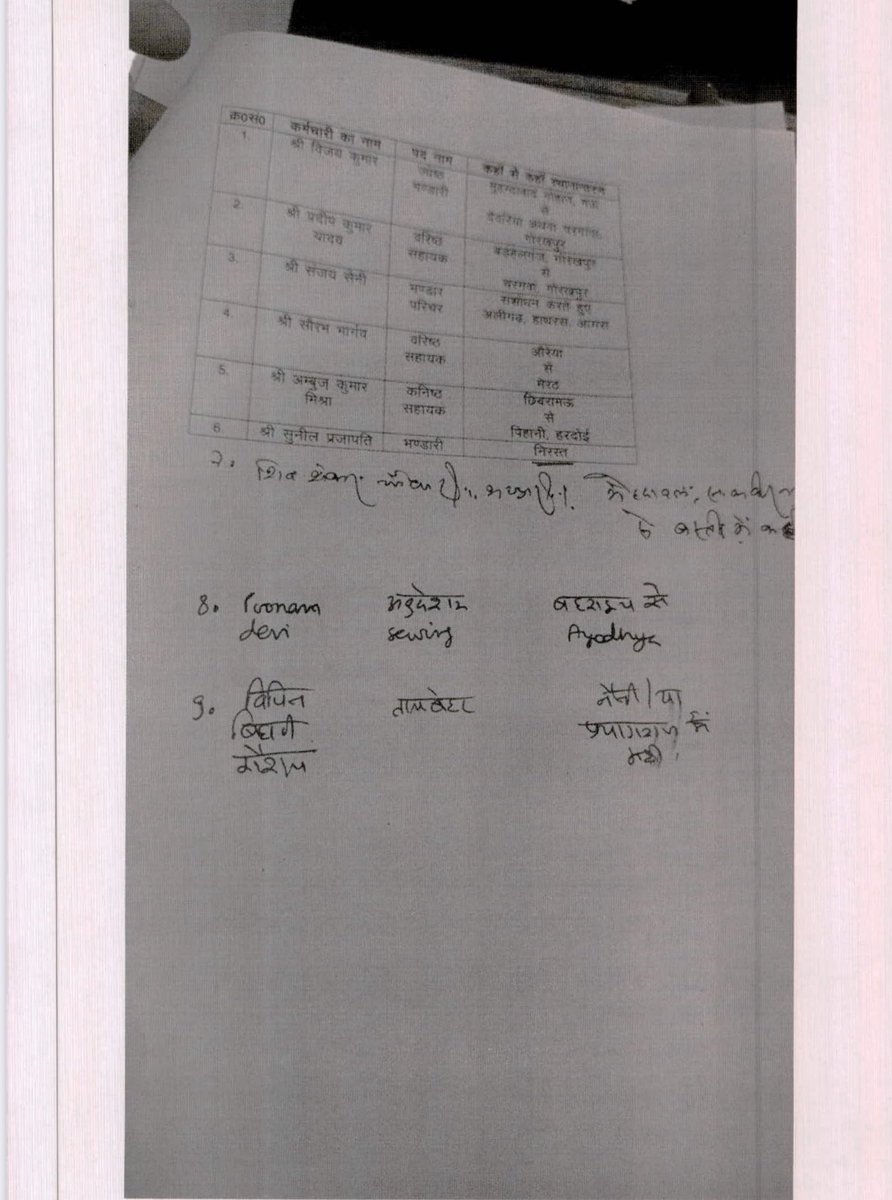 क्र0सं0 कर्मचारी का नाम पद नाम कहाँ से कहाँ स्थानान्तरण
1. श्री विजय कुमार ज्येष्ठ भण्डारी मुहम्मदाबाद गोहना, मऊ
से
देवरिया अथवा चरगांवा, गोरखपुर
2. श्री प्रदीप कुमार यादव वरिष्ठ सहायक बड़हलगंज, गोरखपुर
से
चरगवां, गोरखपुर
3. श्री संजय सैनी भण्डार परिचर संशोधन करते हुए
अलीगढ़, हाथरस, आगरा
4. श्री सौरभ भार्गव वरिष्ठ सहायक औरैया
से
मेरठ
5. श्री अम्बुज कुमार मिश्रा कनिष्ठ सहायक छिबरामऊ
से
पिहानी, हरदोई
6. श्री सुनील प्रजापति भण्डारी निरस्त
7. शिव
से बस्ती में
8. Poonam अनुदेशक बहराइच से
devi sewing Ayodhya
9. विपिन नैनी / या
बिहारी प्रयागराज में